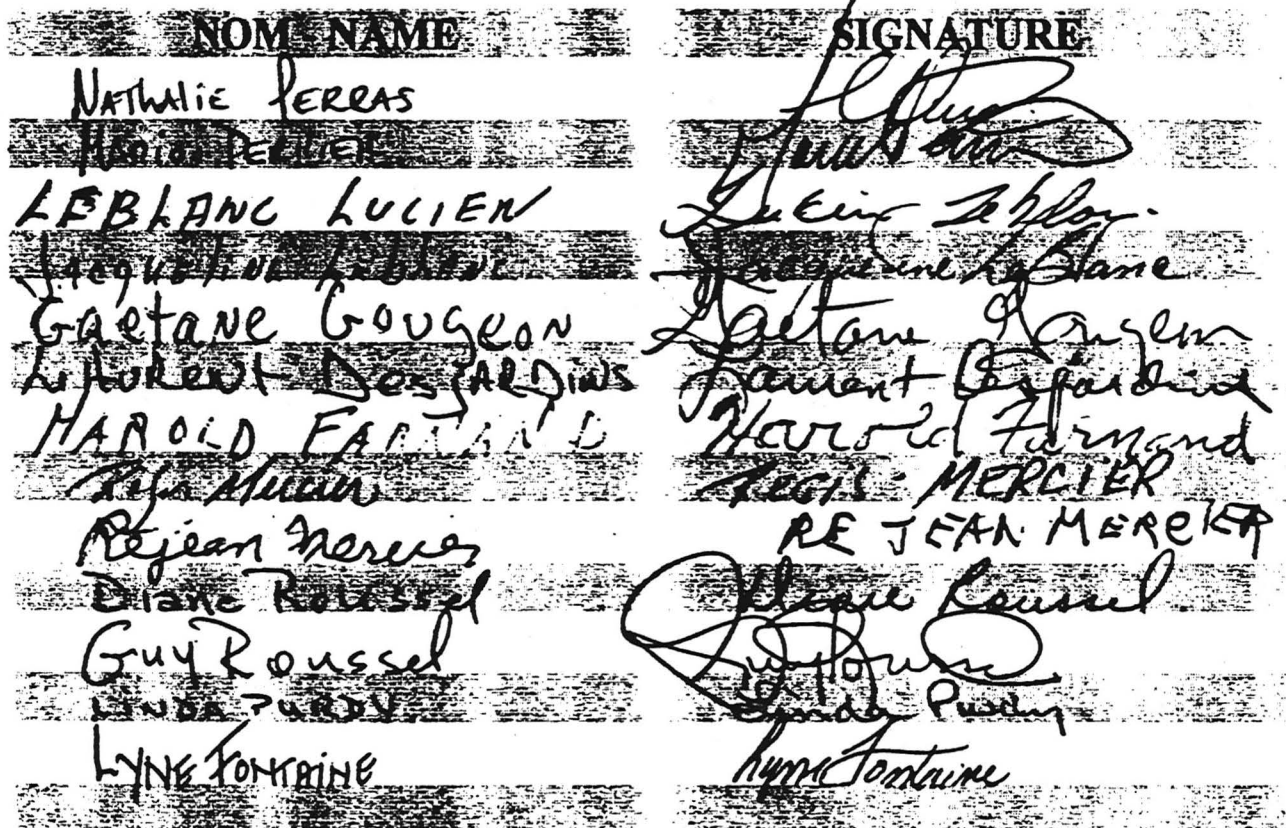 NOM NAME SIGNATURE
NATHALIE PERRAS
LEBLANC LUCIEN Lucien Leblanc
Jacqueline Leblanc Jacqueline LeBlanc
Gaetane Gougeon Gaetane Gougeon
LAURENT DesjARDiNS Laurent Desjardins
HAROLD Harold
Regis Mercier REGIS MERCIER
Réjean Mercier RE JEAN MERCIER
Diane Roussel Diane Roussel
Guy Roussel
LINDA PURDY Linda Purdy
LYNE FONTAINE Lyne Fontaine